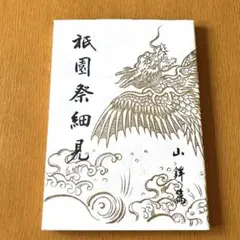 祇園祭細見
山鉾篇